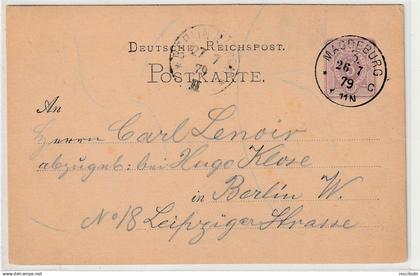 DEUTSCHE REICHSPOST.
POSTKARTE.
27
7
79
MAGDEBURG
26 7
79
11N
C
An
Herrn Carl Lenoir
abzugeb: bei Hugo Klose
in Berlin W.
No 18 Leipziger Strasse